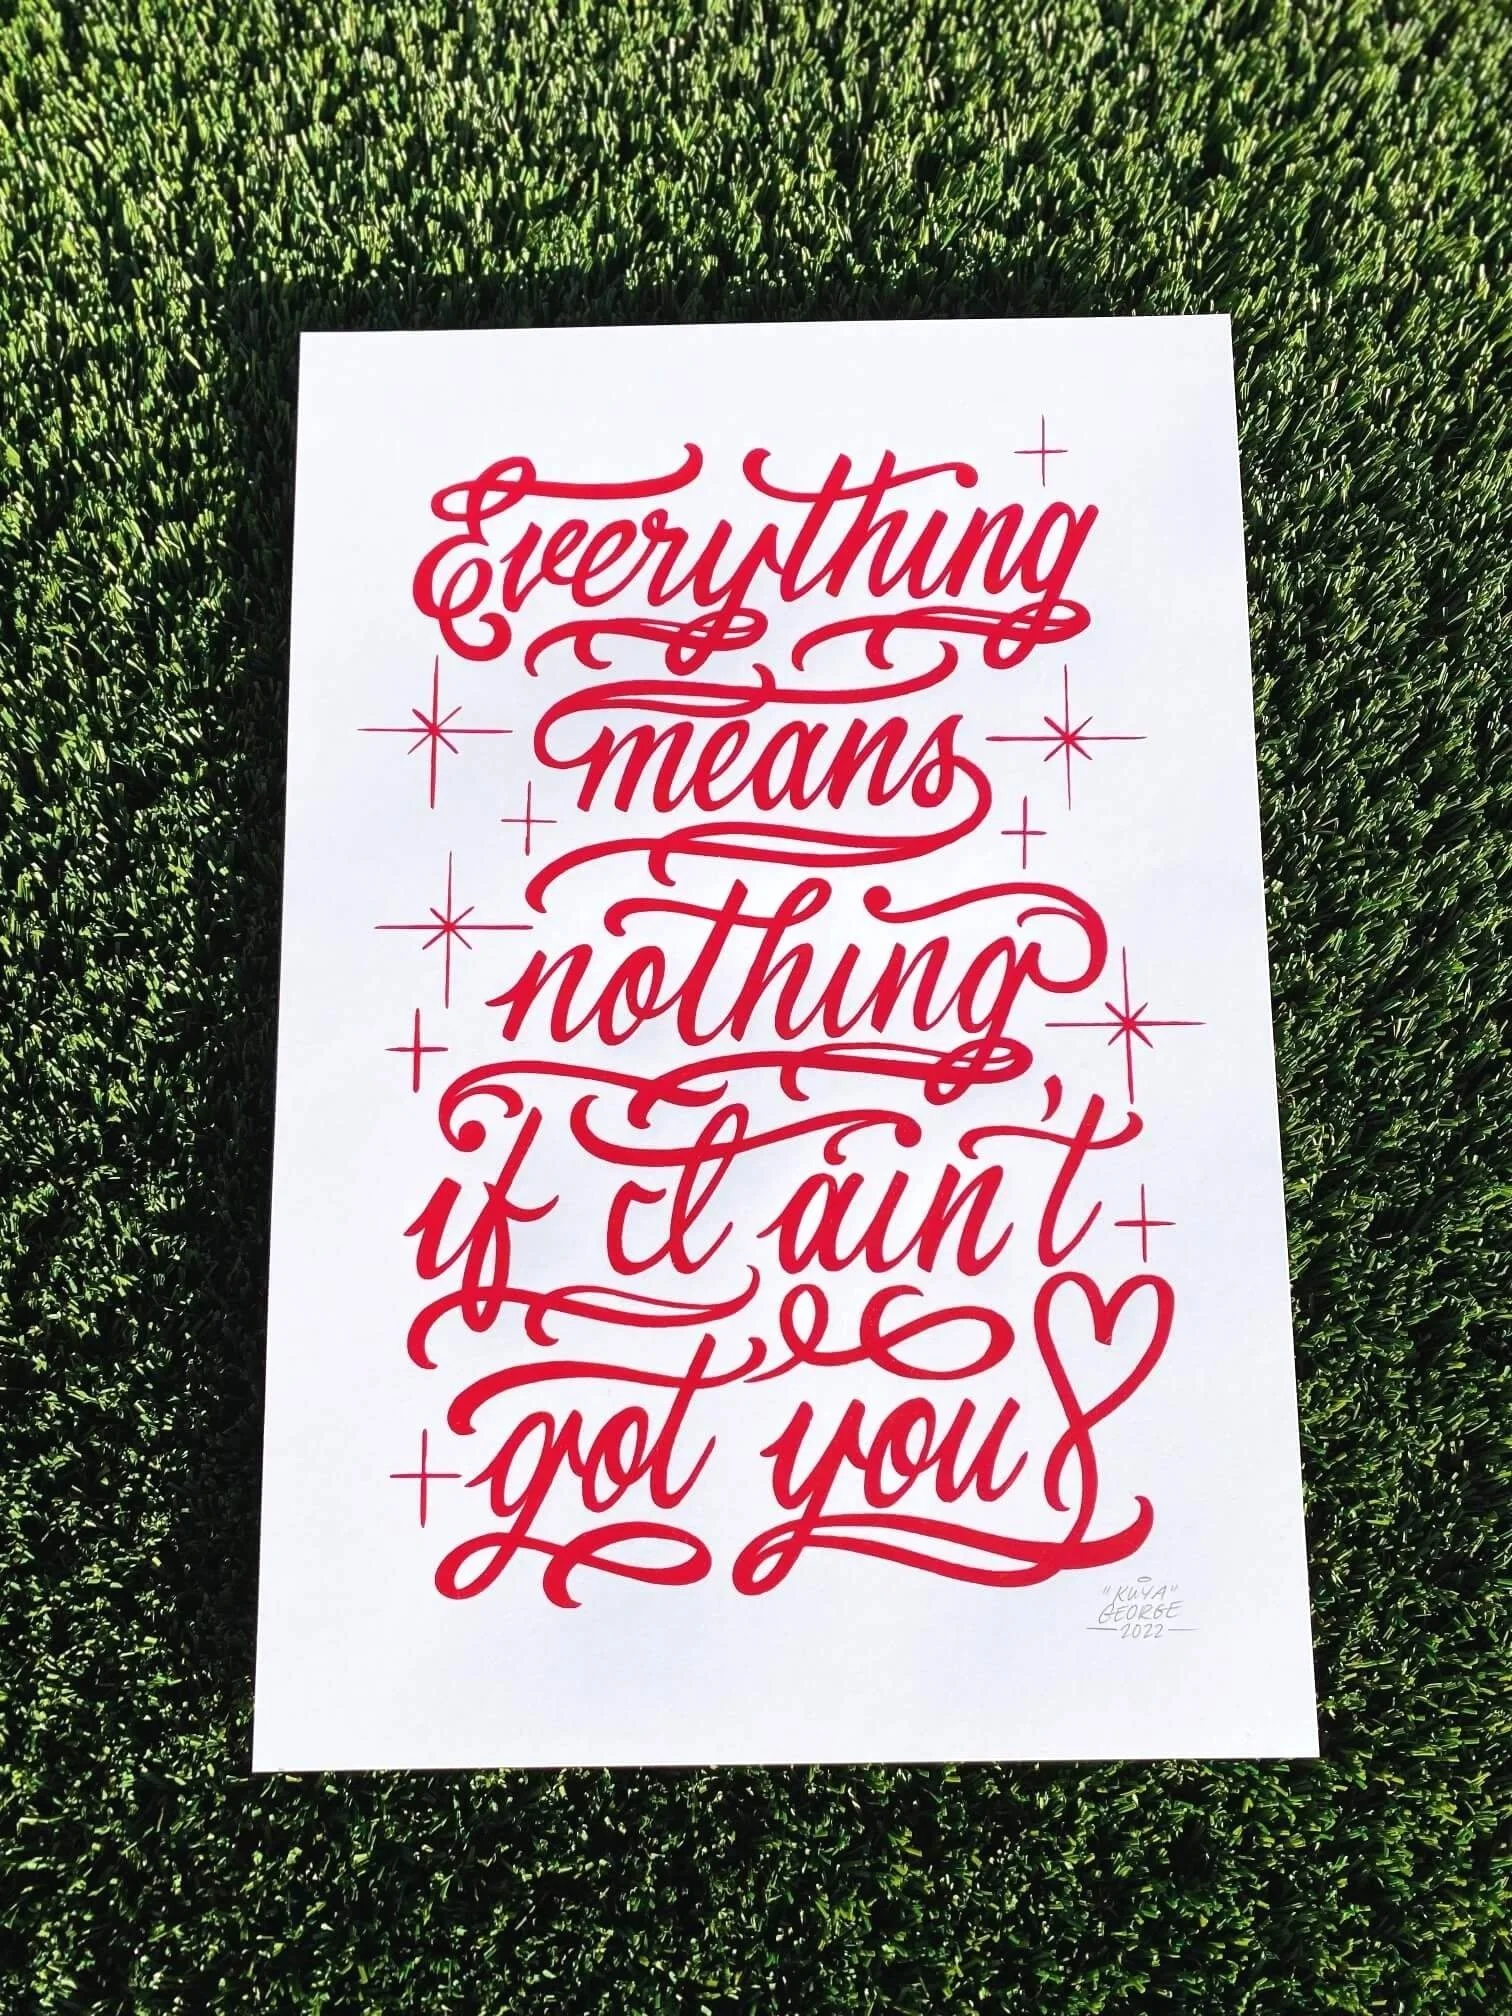 Everything
means
nothing
if I ain't
got you
"KUYA"
GEORGE
2022